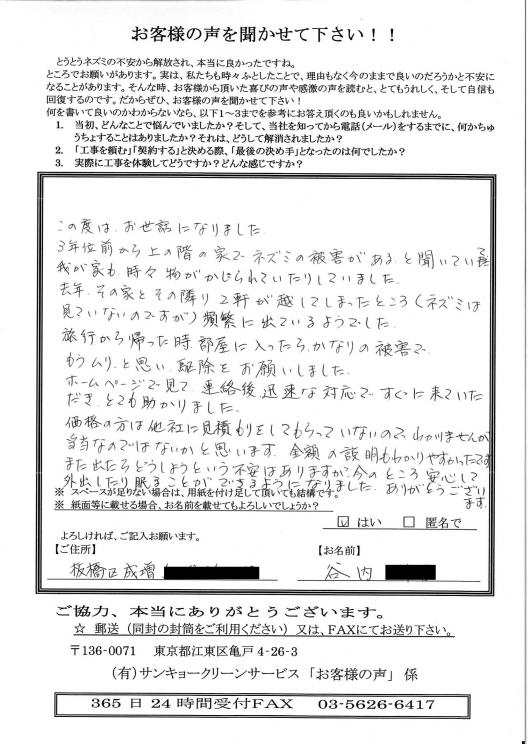 お客様の声を聞かせて下さい！！
とうとうネズミの不安から解放され、本当に良かったですね。
ところでお願いがあります。実は、私たちも時々ふとしたことで、理由もなく今のままで良いのだろうかと不安に
なることがあります。そんな時、お客様から頂いた喜びの声や感激の声を読むと、とてもうれしく、そして自信も
回復するのです。だからぜひ、お客様の声を聞かせて下さい！
何を書いて良いのかわからないなら、以下1～3までを参考にお答え頂くのも良いかもしれません。
1. 当初、どんなことで悩んでいましたか？そして、当社を知ってから電話（メール）をするまでに、何かちゅ
うちょすることはありましたか？それは、どうして解消されましたか？
2. 「工事を頼む」「契約する」と決める際、「最後の決め手」となったのは何でしたか？
3. 実際に工事を体験してどうですか？どんな感じですか？
この度は、お世話になりました。
3年位前から上の階の家でネズミの被害がある、と聞いていて
我が家も、時々物がかじられていたりしていました。
去年、その家とその隣り2軒が越してしまったところ（ネズミは
見ていないのですが）頻繁に出ているようでした。
旅行から帰った時、部屋に入ったら、かなりの被害で、
もうムリ、と思い、駆除をお願いしました。
ホームページで見て、連絡後、迅速な対応で、すぐに来ていた
だき、とても助かりました。
価格の方は他社に見積もりをしてもらっていないので、わかりませんが
当なのではないかと思います。金額の説明もわかりやすかったです
また出たらどうしようという不安はありますが、今のところ、安心して
外出したり眠ることができるようになりました。ありがとうござい
ます。
※ スペースが足りない場合は、用紙を付け足して頂いても結構です。
※ 紙面等に載せる場合、お名前を載せてもよろしいでしょうか？
☑ はい □ 匿名で
よろしければ、ご記入お願います。
【ご住所】 【お名前】
板橋区成増 谷内
ご協力、本当にありがとうございます。
☆ 郵送（同封の封筒をご利用ください）又は、FAXにてお送り下さい。
〒136-0071 東京都江東区亀戸4-26-3
（有）サンキョークリーンサービス「お客様の声」係
365日24時間受付FAX 03-5626-6417